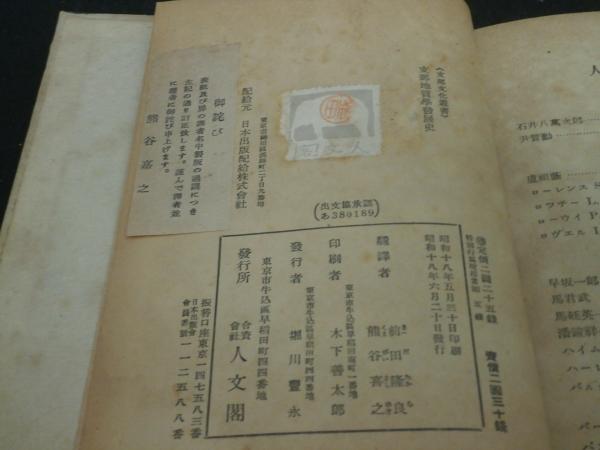 (支那文化叢書)
支那地質學發展史
人文閣
(出文協承認 あ380189)
配給元 日本出版配給株式會社
東京市神田區淡路町二丁目九番地
御詫び
表紙及び扉の譯者名中製版の過誤につき
左記の通り訂正致します。謹んで譯者並
に讀者に御詫び申上げます。
熊谷嘉之
定價二圓二十五錢
賣價二圓三十錢
昭和十八年五月三十日印刷
昭和十八年六月二十日發行
飜譯者
前田隆良
熊谷喜之
東京市牛込區早稻田町一番地
印刷者 木下善太郎
東京市牛込區早稻田町四四番地
發行者 堀川豐永
東京市牛込區早稻田町四四番地
發行所 合資會社 人文閣
振替口座東京一四七五八三番
日本出版會會員番號 一一二五八八番
人
石井八萬次郎
尹贊勳
ローレンス
ロツチー L.
ローウイ P
ロヴエル L
早坂一郎
馬君武
馬廷英
潘鍾祥
ハイム
ハーレ
バル